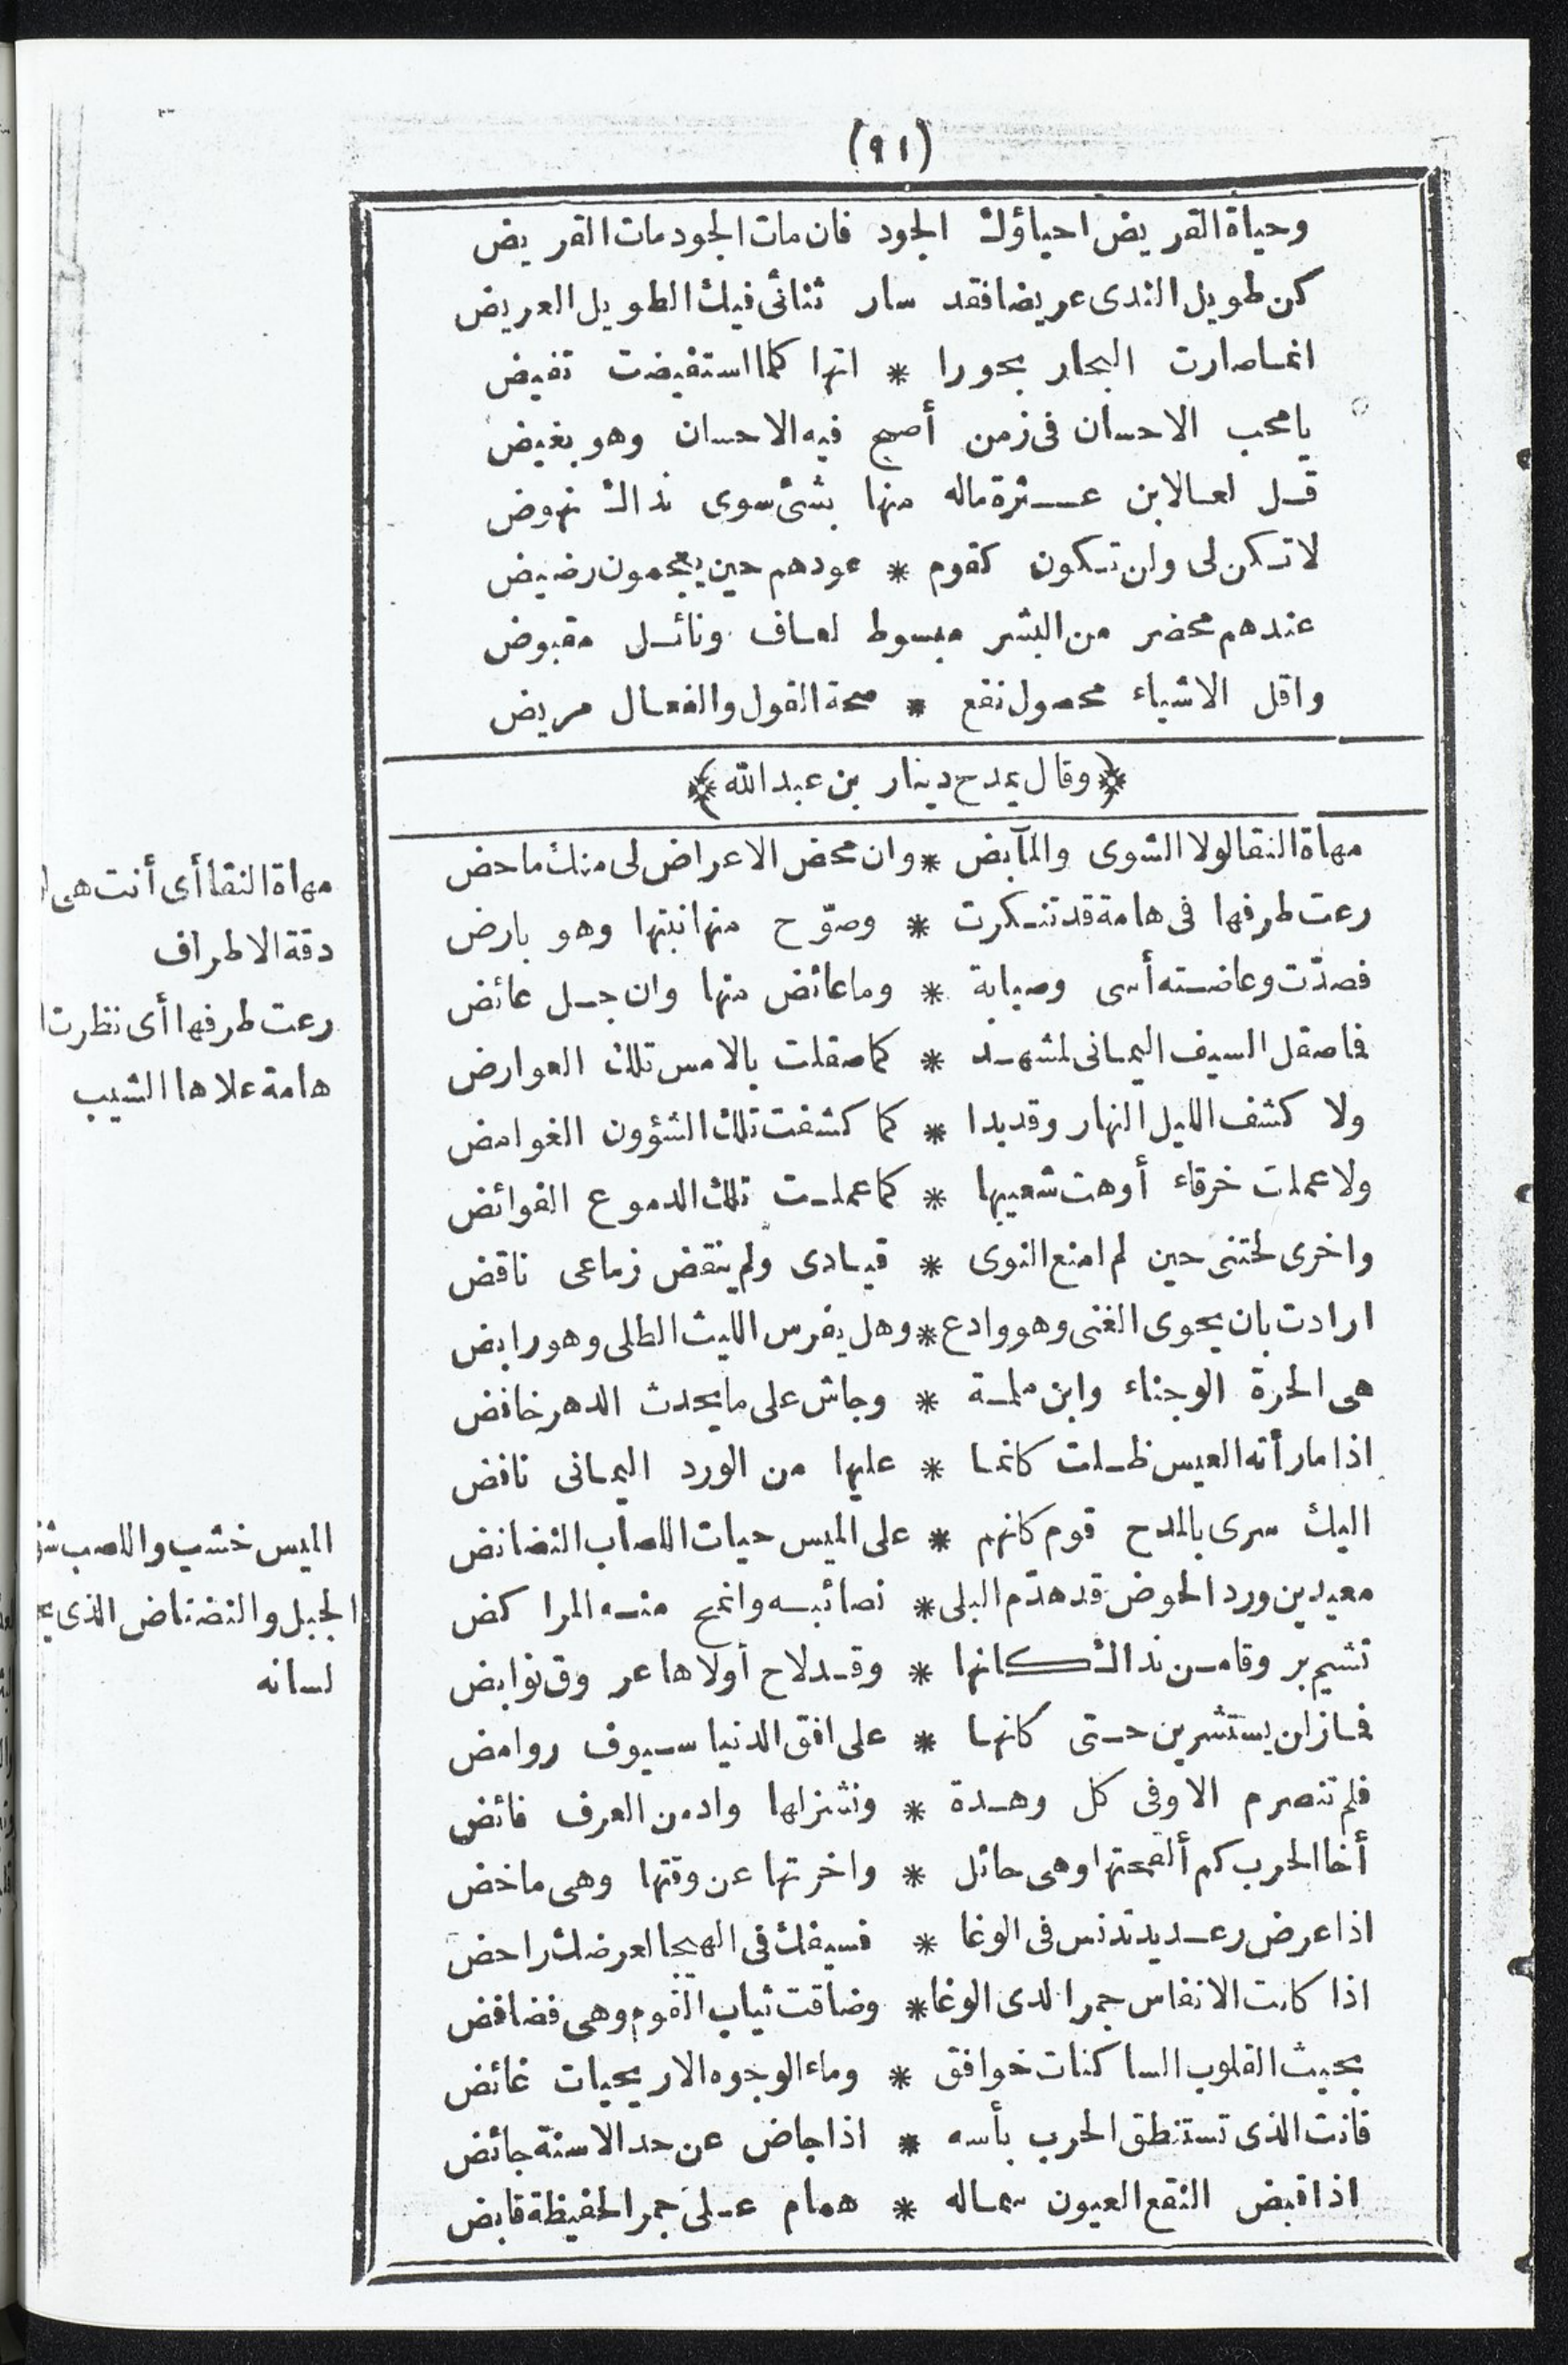 (٩١)
وحياة القريض احياؤك الجود فان مات الجود مات القريض
كن طويل الندى عريضا فقد سار ثنائى فيك الطويل العريض
انما صارت البحار بحورا * انها كلما استفيضت تفيض
يا محب الاحسان فى زمن أصبح فيه الاحسان وهو بغيض
قل لعا لابن عثرة ماله منها بشئ سوى نداك نهوض
لا تكن لى ولن تكون كقوم * عودهم حين يعجمون رضيض
عندهم محضر من البشر مبسوط لعاف ونائل مقبوض
واقل الاشياء محصول نفع * صحة القول والفعال مريض
﴿وقال يمدح دينار بن عبد الله﴾
مهاة النقا لولا الشوى والمآبض * وان محض الاعراض لى منك ماحض
رعت طرفها فى هامة قد تنكرت * وصوّح منها نبتها وهو بارض
فصدّت وعاضته أسى وصبابة * وما عائض منها وان جل عائض
فما صقل السيف اليمانى لمشهد * كما صقلت بالامس تلك العوارض
ولا كشف الليل النهار وقد بدا * كما كشفت تلك الشؤون الغوامض
ولا عملت خرقاء أوهت شعيبها * كما عملت تلك الدموع الفوائض
واخرى لحتنى حين لم امنع النوى * قيادى ولم ينقض زماعى ناقض
ارادت بان يحوى الغنى وهو وادع * وهل يفرس الليث الطلى وهو رابض
هى الحرة الوجناء وابن ملمة * وجاش على ما يحدث الدهر خافض
اذا ما رأته العيس ظلت كانما * عليها من الورد اليمانى نافض
اليك سرى بالمدح قوم كانهم * على الميس حيات اللصاب النضانض
معيدين ورد الحوض قد هدّم البلى * نصائبه وانمح منه المراكض
تشيم بروقا من نداك كانها * وقد لاح أولاها عروق نوابض
فما زلن يستشرين حتى كانها * على افق الدنيا سيوف روامض
فلم تنصرم الا وفى كل وهدة * ونشز لها واد من العرف فائض
أخا الحرب كم ألقحتها وهى حائل * واخرتها عن وقتها وهى ماخض
اذا عرض رعديد تدنس فى الوغا * فسيفك فى الهيجا لعرضك راحض
اذا كانت الانفاس جمرا لدى الوغا * وضاقت ثياب القوم وهى فضافض
بحيث القلوب الساكنات خوافق * وماء الوجوه الاريحيات غائض
فانت الذى تستنطق الحرب بأسه * اذا جاض عن حد الاسنة جائض
اذا قبض النقع العيون سماله * همام على جمر الحفيظة قابض
مهاة النقا أى أنت هى
دقة الاطراف
رعت طرفها أى نظرت
هامة علاها الشيب
الميس خشب واللصب
الجبل والنضناض الذى
لسانه